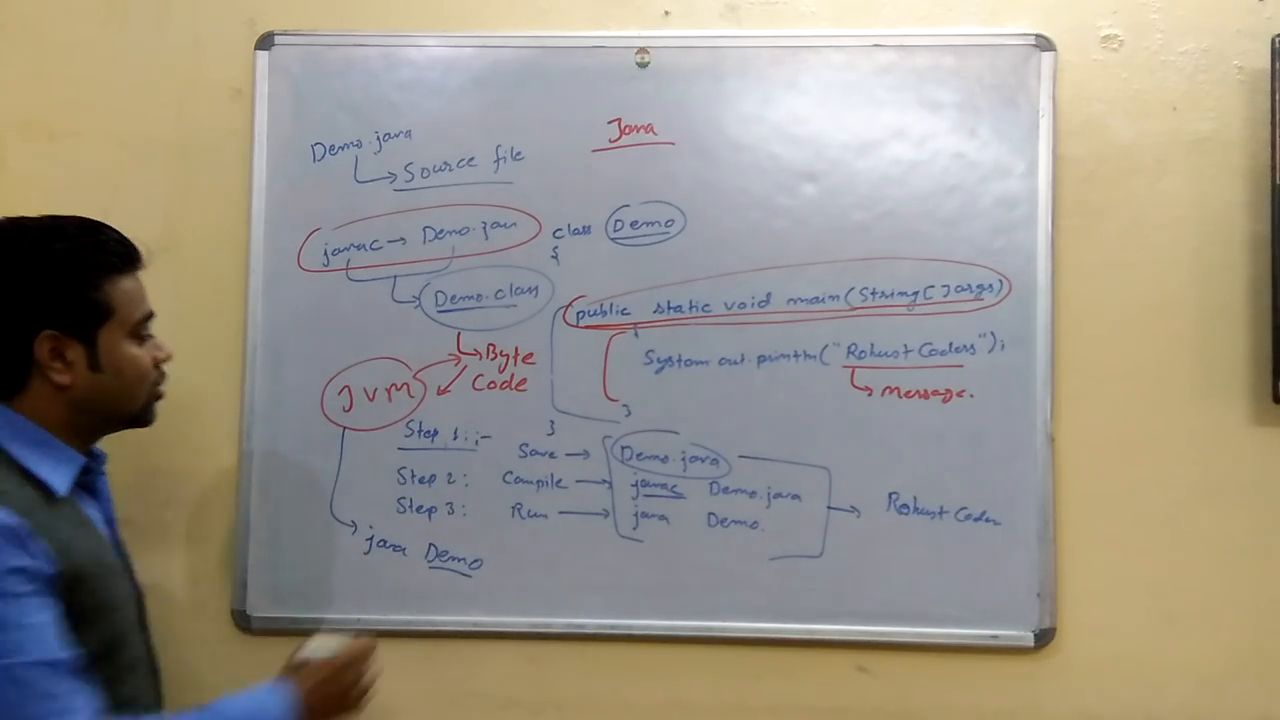 Java
Demo.java
Source file
javac → Demo.java
Demo.class
Byte
Code
JVM
java Demo
class Demo
{
public static void main(String[] args)
{
System.out.println("Robust Coders");
Message.
}
}
Step 1:;- Save → Demo.java
Step 2: Compile → javac Demo.java
Step 3: Run → java Demo.
Robust Coder